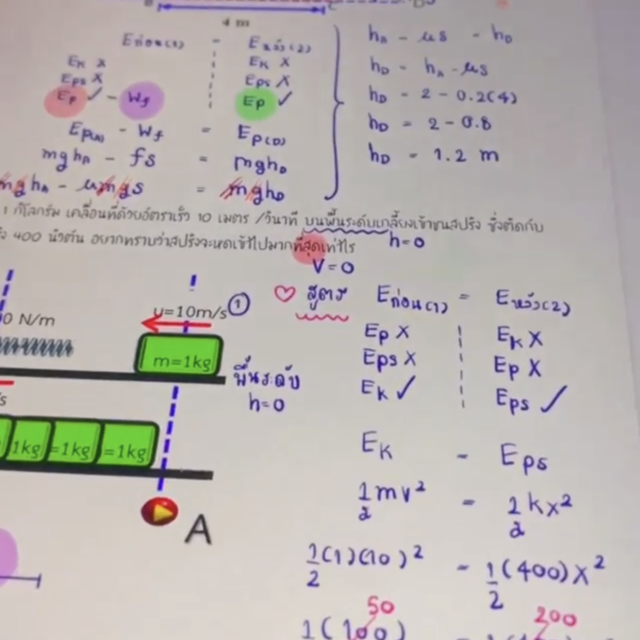 C
4 m
Eก่อน(1) = Eหลัง(2)
Ek X Ek X
Eps X Eps X
Ep ✓ - Wf Ep ✓
Ep(A) - Wf = Ep(D)
mghA - fs = mghD
mghA - μmgs = mghD
hA - μs = hD
hD = hA - μs
hD = 2 - 0.2(4)
hD = 2 - 0.8
hD = 1.2 m
1 กิโลกรัม เคลื่อนที่ด้วยอัตราเร็ว 10 เมตร /วินาที บนพื้นระดับเกลี้ยงเข้าชนสปริง ซึ่งติดกับ
400 นิวตัน อยากทราบว่าสปริงจะหดเข้าไปมากที่สุดเท่าไร
h=0
v=0
0 N/m
u=10m/s ①
m=1kg
พื้นระดับ
h=0
1kg =1kg =1kg
A
♡ สูตร Eก่อน(1) = Eหลัง(2)
Ep X Ek X
Eps X Ep X
Ek ✓ Eps ✓
Ek = Eps
½mv² = ½kx²
½(1)(10)² = ½(400)x²
50 200
1(100)